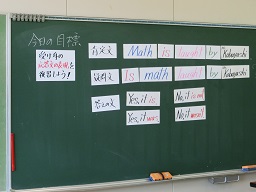 今日の目標
受け身の
疑問文の表現を
復習しよう!
肯定文 Math is taught by Kobayashi
疑問文 Is math taught by Kobayashi
答えの文 Yes, it is. No, it isn't.
Yes, it was. No, it wasn't.